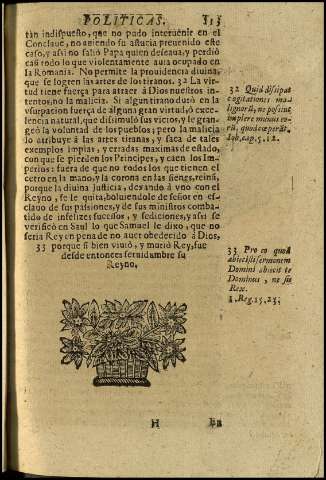 POLITICAS. 113
tan indispuesto, que no pudo interuenir en el
Conclaue, no auiendo su astucia preuenido este
caso, y assi no salió Papa quien deseaua, y perdió
casi todo lo que violentamente auia ocupado en
la Romania. No permite la prouidencia diuina,
que se logren las artes de los tiranos. 32 La vir
tud tiene fuerza para atraer à Dios nuestros in-
tentos, no la malicia. Si algun tirano duró en la
vsurpacion fuerça de alguna gran virtud, ó exce-
lencia natural, que dissimuló sus vicios, y le gran-
geó la voluntad de los pueblos; pero la malicia
lo atribuye à las artes tiranas, y saca de tales
exemplos impias, y erradas maximas de estado,
con que se pierden los Principes, y caen los Im-
perios: fuera de que no todos los que tienen el
cetro en la mano, y la corona en las sienes, reinã,
porque la diuina Justicia, dexando à vno con el
Reyno, se le quita, boluiendole de señor en es-
clauo de sus passiones, y de sus ministros comba-
tido de infelizes sucessos, y sediciones, y assi se
verificó en Saul lo que Samuel le dixo, que no
seria Rey en pena de no auer obedecido à Dios,
33 porque si bien viuió, y murió Rey, fue
desde entonces seruidumbre su
Reyno.
32 Qui dissipat
cogitationes ma-
lignorũ, ne possint
implere manus eo-
rũ, quod cœperãt.
Iob, cap. 5. 12.
33 Pro eo quod
abiecisti sermonem
Domini abiecit te
Dominus, ne sis
Rex.
1. Reg. 15. 23.
H En